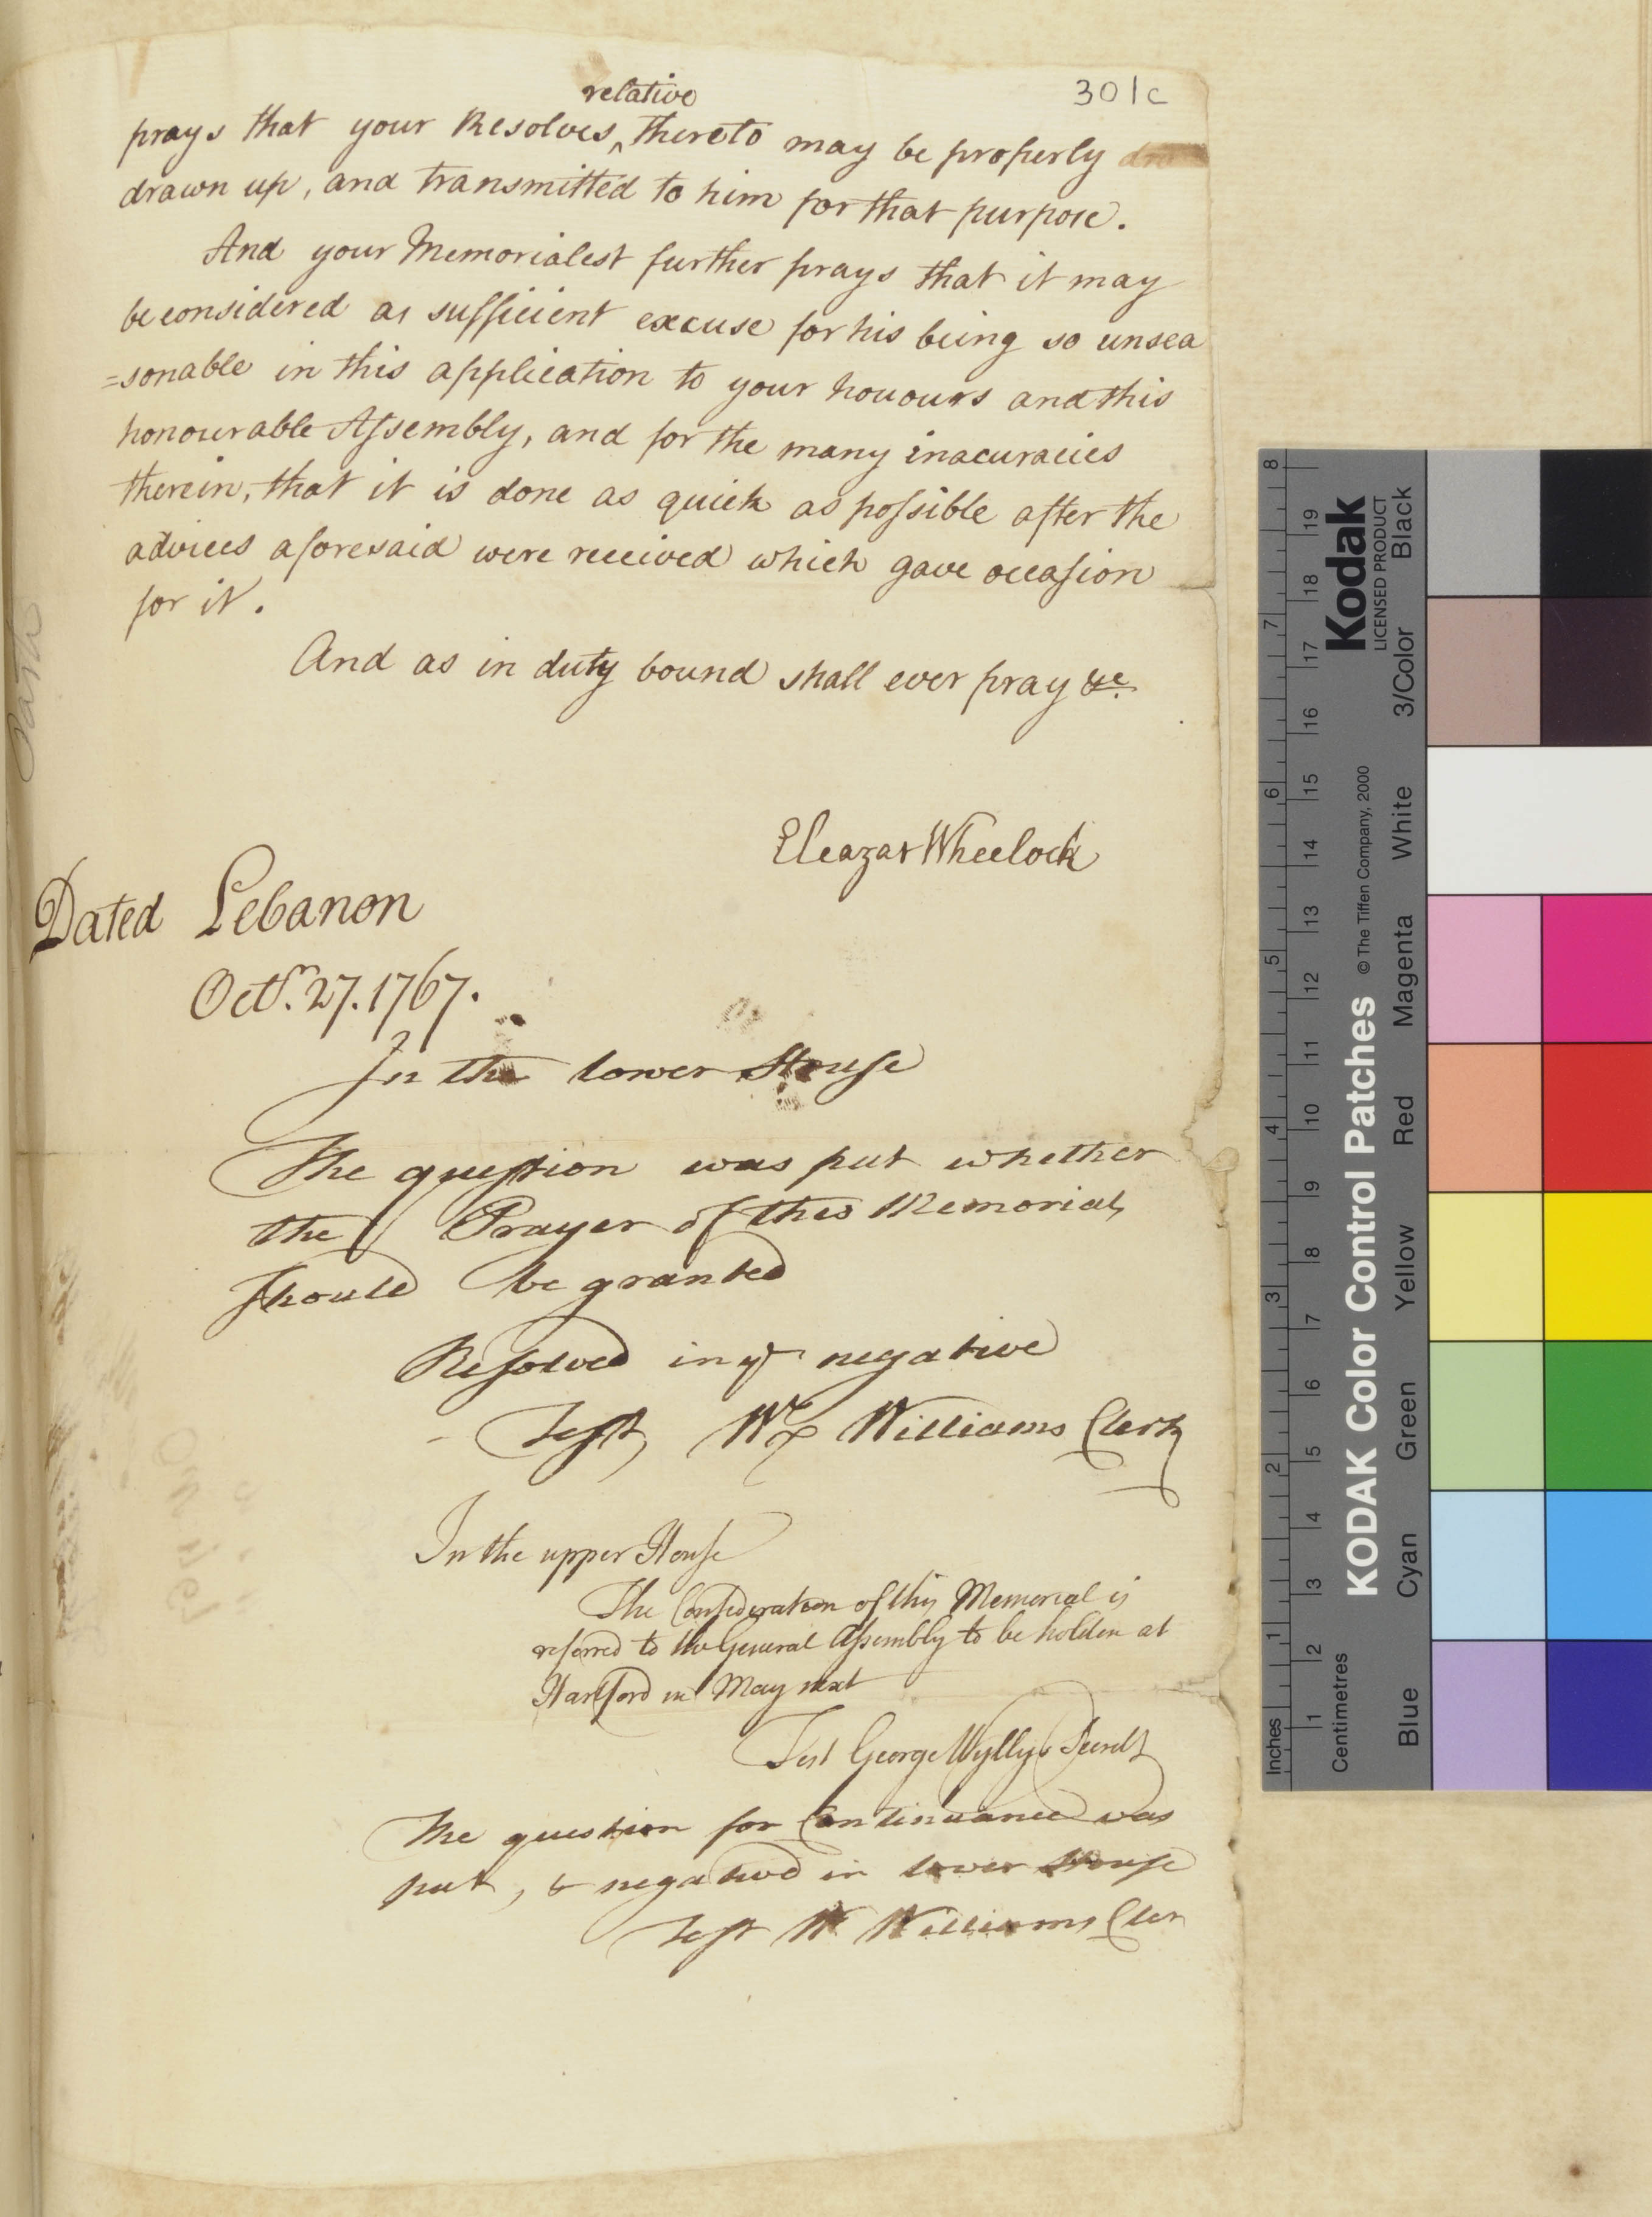 301c
relative
prays that your Resolves ‸ thereto may be properly
drawn up, and transmitted to him for that purpose.
And your Memorialest further prays that it may
be considered as sufficient excuse for his being so unsea
=sonable in this application to your honours and this
honourable Assembly, and for the many inacuracies
therein, that it is done as quick as possible after the
advices aforesaid were received which gave occasion
for it.
And as in duty bound shall ever pray &c.
Eleazar Wheelock
Dated Lebanon
Octr. 27. 1767.
In the lower House
The question was put whether
the Prayer of this Memorial,
Should be granted
Resolved in ye negative
Test, Wm Williams Clerk
In the upper House
The Consideration of this Memorial is
referred to the General Assembly to be holden at
Hartford in May next
Test George Wyllys Secrety
The question for Continuance was
put, & negatived in lower House
Test W Williams Cler
Kodak
LICENSED PRODUCT
KODAK Color Control Patches © The Tiffen Company, 2000
Blue Cyan Green Yellow Red Magenta White 3/Color Black
Inches 1 2 3 4 5 6 7 8
Centimetres 1 2 3 4 5 6 7 8 9 10 11 12 13 14 15 16 17 18 19